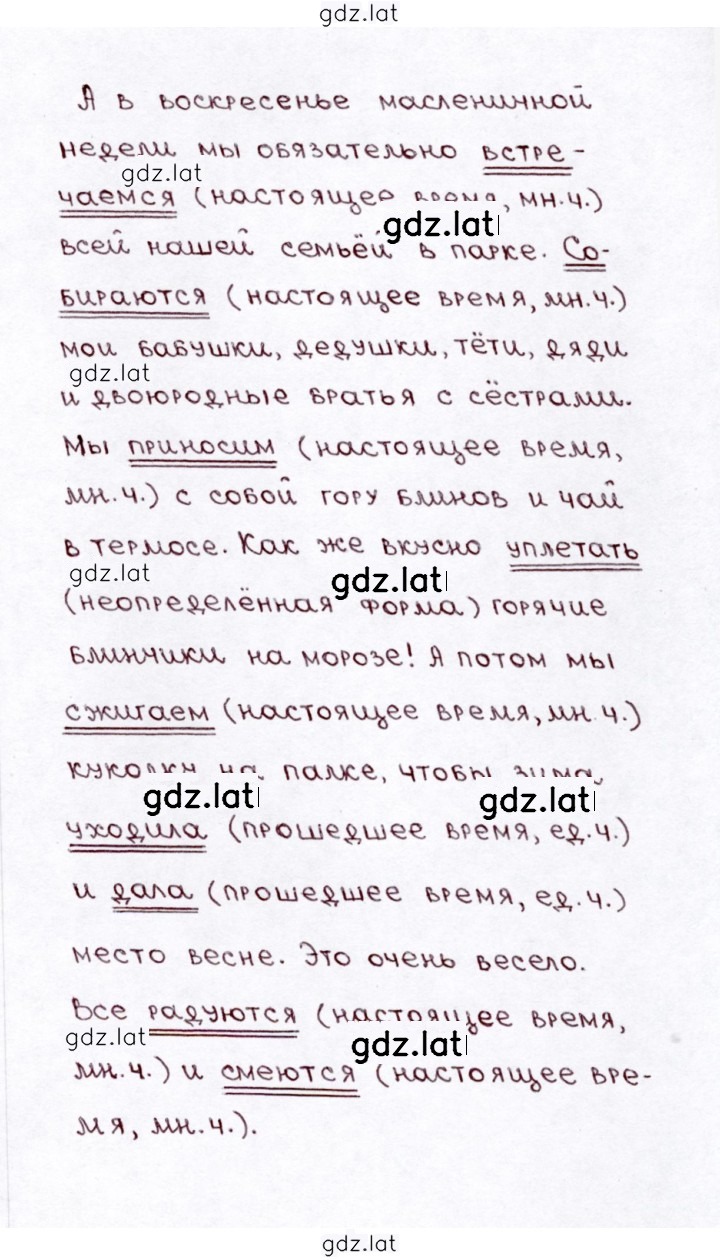 gdz.lat
А в воскресенье масленичной
недели мы обязательно встре-
gdz.lat
чаемся (настоящее время, мн.ч.)
gdz.lat
всей нашей семьёй в парке. Со-
бираются (настоящее время, мн.ч.)
мои бабушки, дедушки, тёти, дяди
gdz.lat
и двоюродные братья с сёстрами.
Мы приносим (настоящее время,
мн.ч.) с собой гору блинов и чай
в термосе. Как же вкусно уплетать
gdz.lat
gdz.lat
(неопределённая форма) горячие
блинчики на морозе! А потом мы
сжигаем (настоящее время, мн.ч.)
куколку на палке, чтобы зима
gdz.lat
gdz.lat
уходила (прошедшее время, ед.ч.)
и дала (прошедшее время, ед.ч.)
место весне. Это очень весело.
Все радуются (настоящее время,
gdz.lat
gdz.lat
мн.ч.) и смеются (настоящее вре-
мя, мн.ч.).
gdz.lat